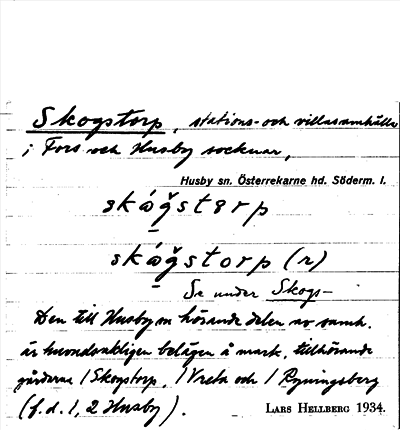 Skogstorp, stations- och villasamhälle
i Fors och Husby socknar,
Husby sn. Österrekarne hd. Söderm. l.
skógstərp
skógstorp (r)
Se under Skogs-
Den till Husby sn hörande delen av samh.
är huvudsakligen belägen å mark, tillhörande
gårdarna 1 Skogstorp, 1 Vreta och 1 Ryningsberg
(f.d. 1, 2 Husby).
LARS HELLBERG 1934.